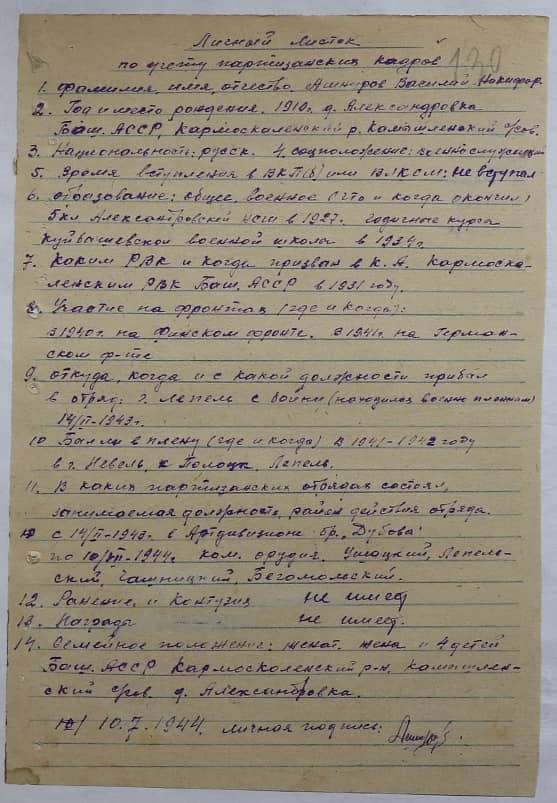 Личный Листок
по учету партизанских кадров
130
1. Фамилия, имя, отчество. Ашкуров Василий Никифор
2. Год и место рождения. 1910г. д. Александровка
Баш. АССР, Кармоскаленский р. Камышленский с/сов.
3. Национальность: русск. 4. соцположение: военнослужащий
5. Время вступления в ВКП(б) или ВЛКСМ: не вступал
6. Образование: общее, военное (что и когда окончил)
5 кл Александровской НСШ в 1927г. годичные курсы
Куйбышевской военной школы в 1934г.
7. Каким РВК и когда призван в К.А. Кармоска-
ленским РВК Баш. АССР в 1931 году.
8. Участие на фронтах (где и когда):
в 1940г. на Финском фронте. в 1941г. на Герман-
ском ф-те
9. Откуда, когда и с какой должности прибыл
в отряд: г. Лепель с бойни (находился военно пленным)
14/II-1943г.
10 Были ли в плену (где и когда) в 1941-1942 году
в г. Невель, Полоцк, Лепель.
11. В каких партизанских отрядах состоял,
занимаемая должность, район действия отряда.
с 14/II-1943г. в Артдивизионе бр. "Дубова"
по 10/VII-1944г. ком. орудия. Ушацкий, Лепель-
ский, Чашницкий, Бегомольский.
12. Ранение, и контузия не имеет
13. Награды не имеет.
14. Семейное положение: женат. жена и 4 детей
Баш. АССР Кармоскаленский р-н, Камышлен-
ский с/сов. д. Александровка.
10.7.1944. личная подпись: